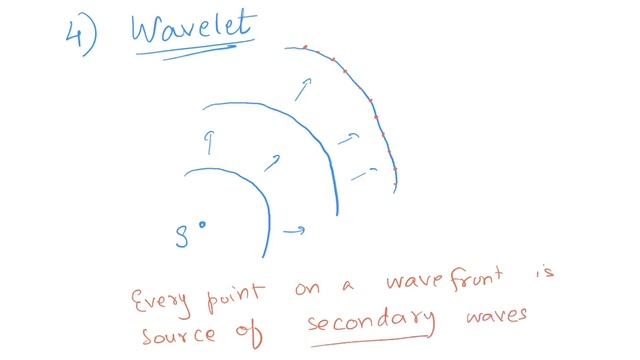 4) Wavelet
S
Every point on a wavefront is
source of secondary waves